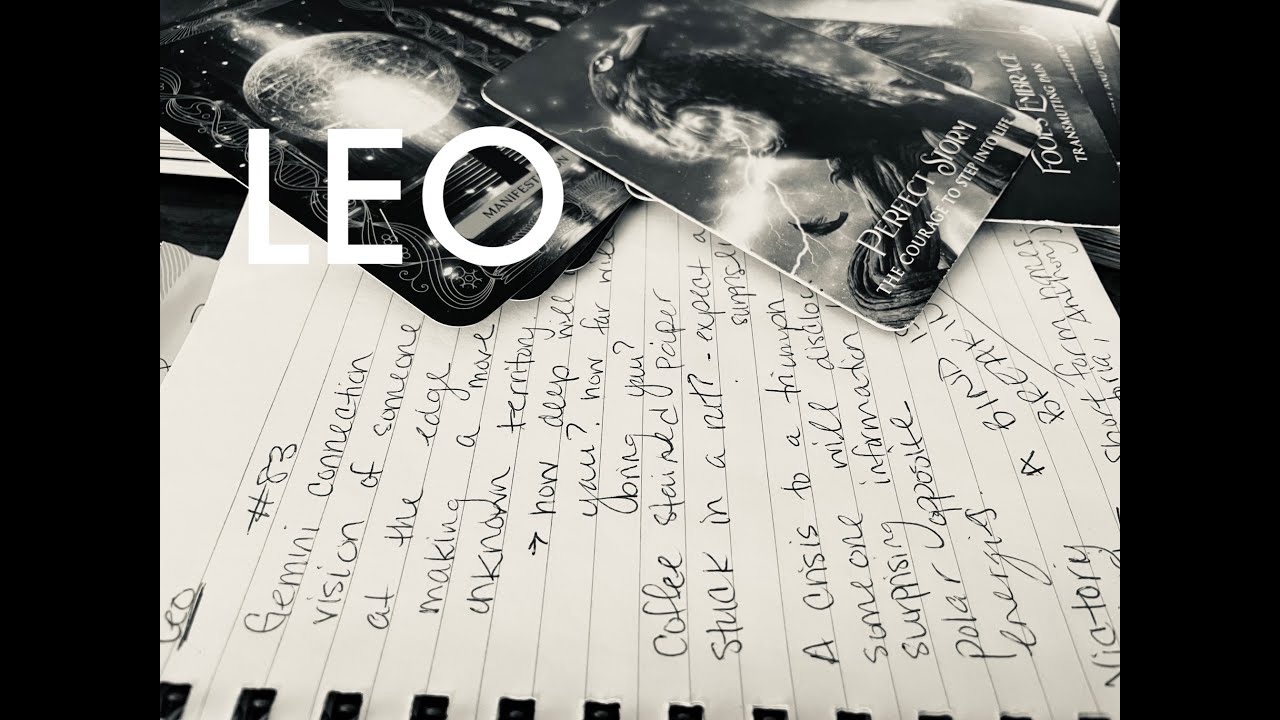 LEO
MANIFEST
PERFECT STORM
THE COURAGE TO STEP INTO LIFE
FOOL'S EMBRACE
TRANSMUTING PAIN
Leo
#83
Gemini connection
vision of someone
at the edge
making a move
unknown territory
→ how deep will
you? how far will
bring you?
Coffee stained paper
stuck in a rut? - expect a
A crisis to a triumph
someone will
surprising information
polar opposite
energies
BREAK
short form
Anthony
Victory